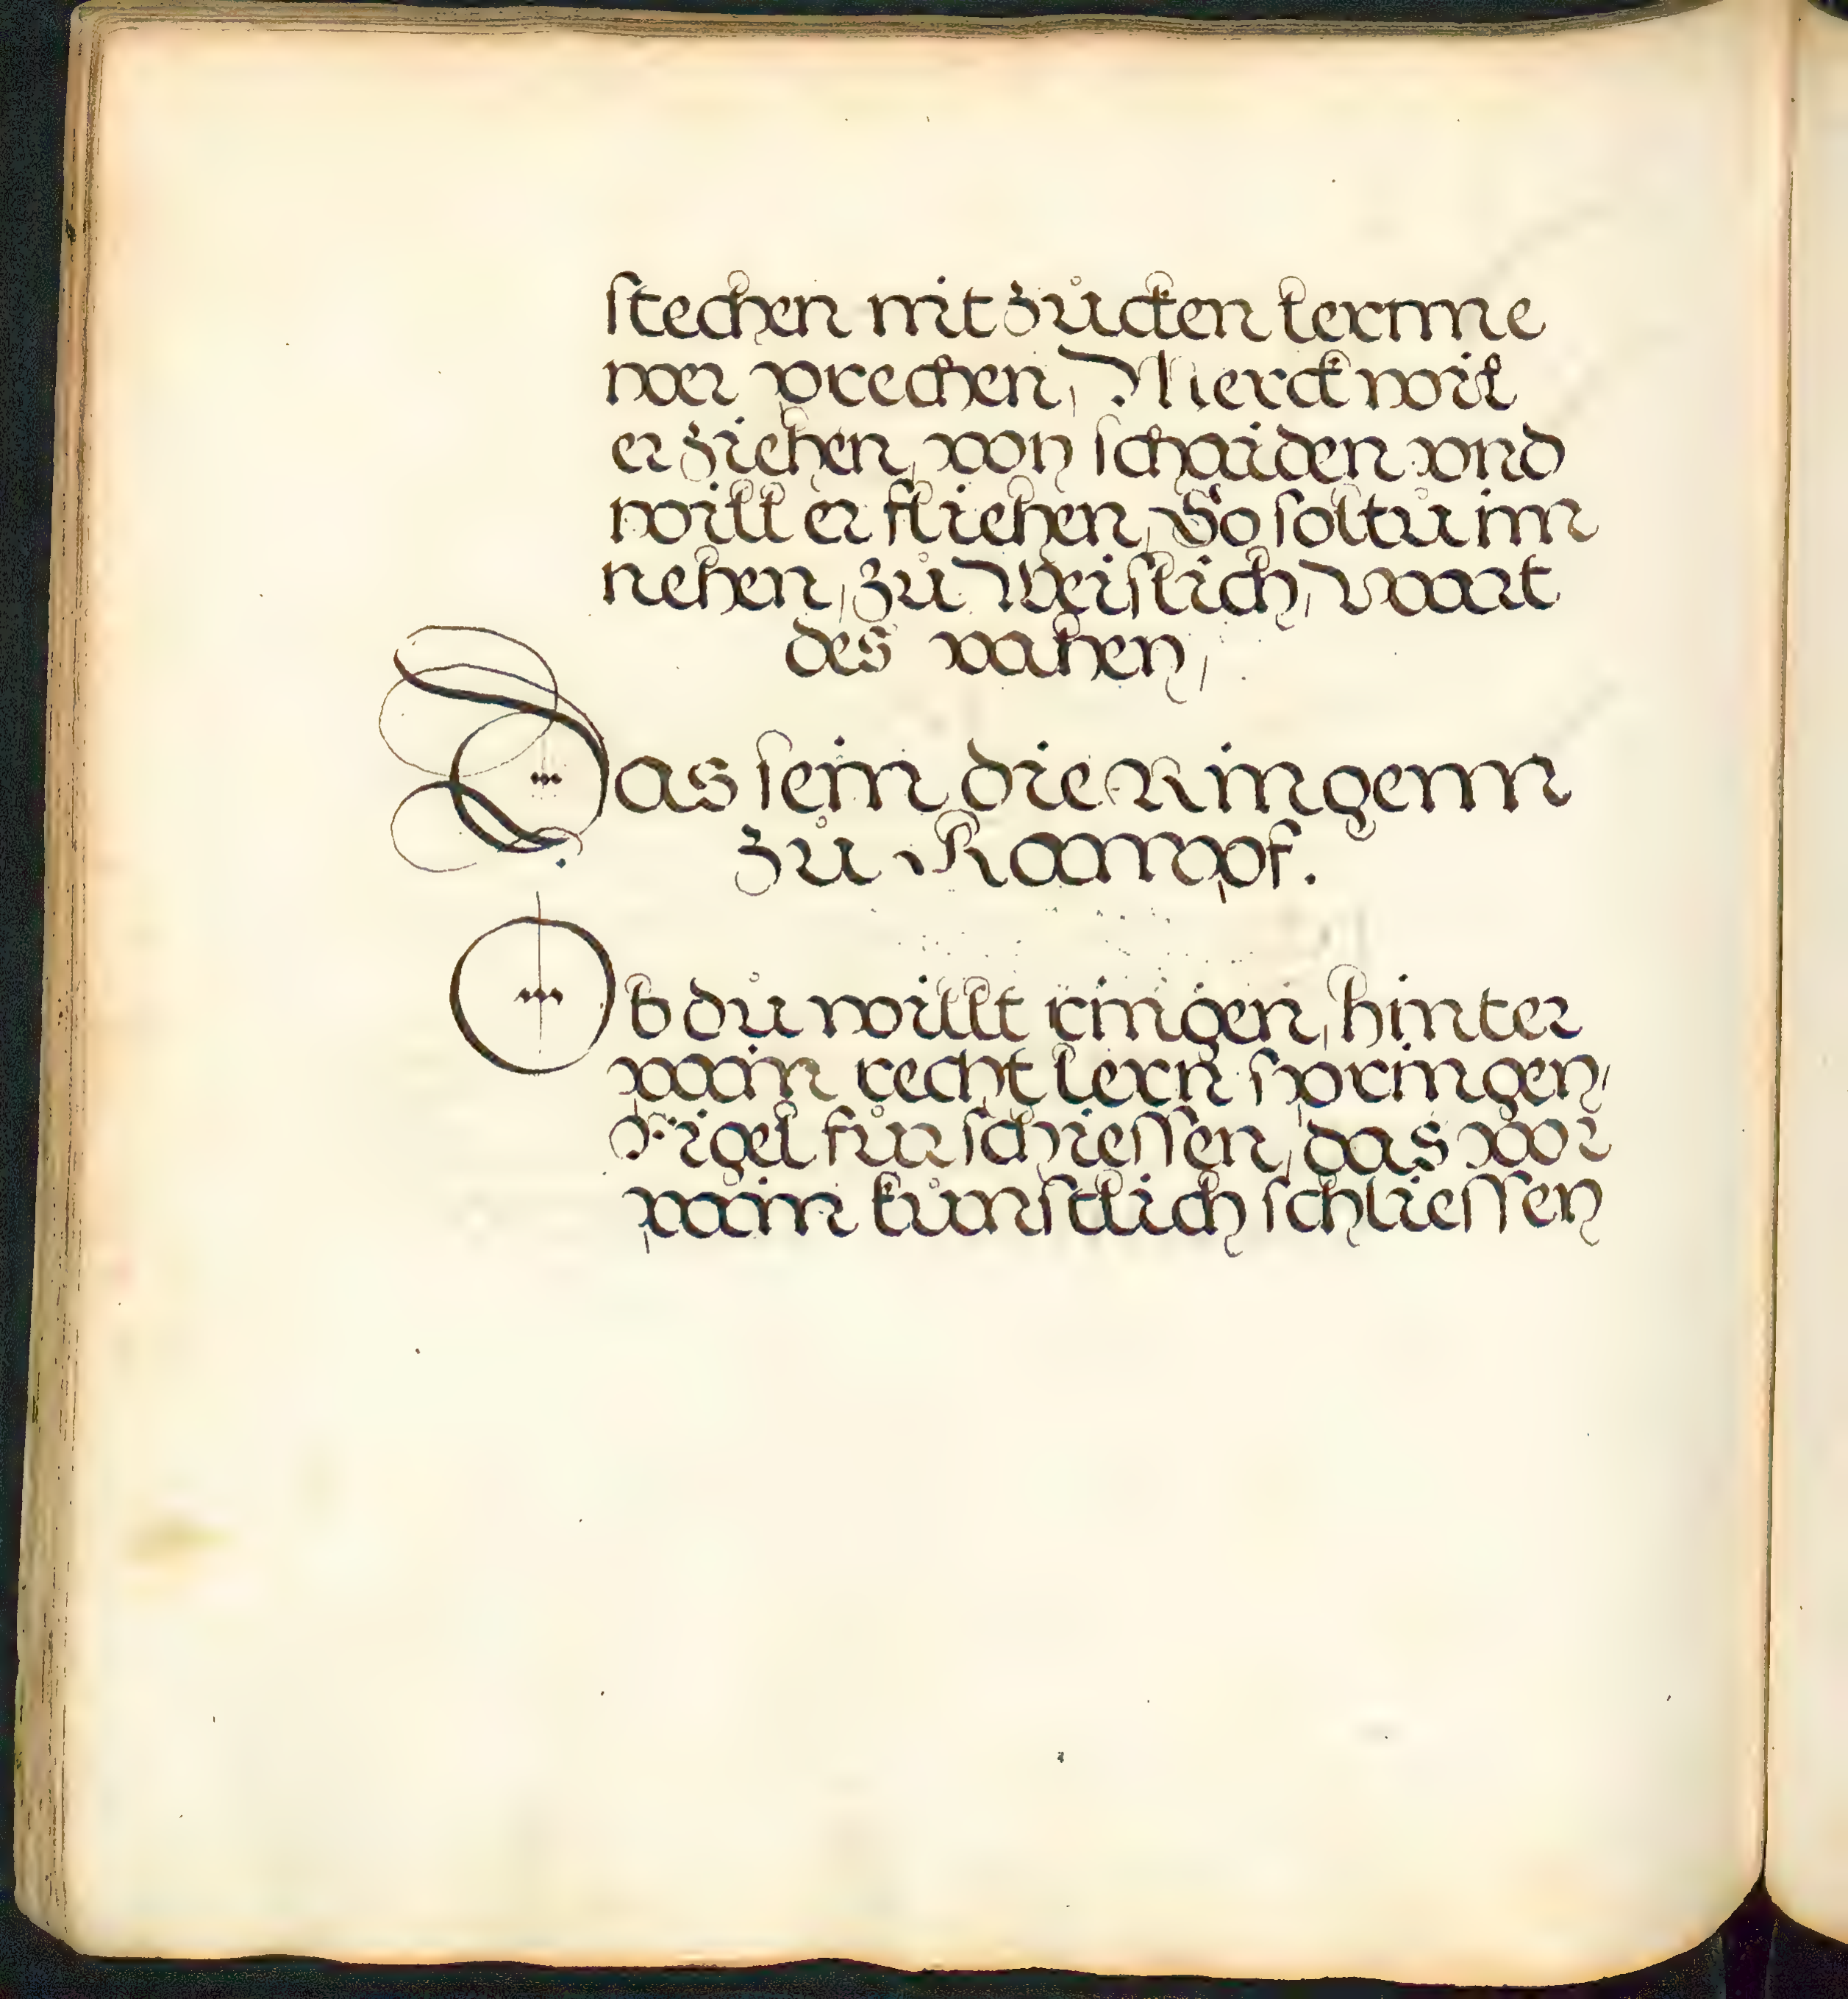 stechen mit zůcken lernne
wer prechen, Merck wil
er ziehen, von schaiden vnd
will er fliehen, So soltu im
nehen, zů Weislich, wart
des vahen,
Das sein die Ringenn
zů Kampf.
Ob dů willt ringen, hinter
pain recht lern springen,
Rigel für schiessen, das vor
pain künstlich schliessen